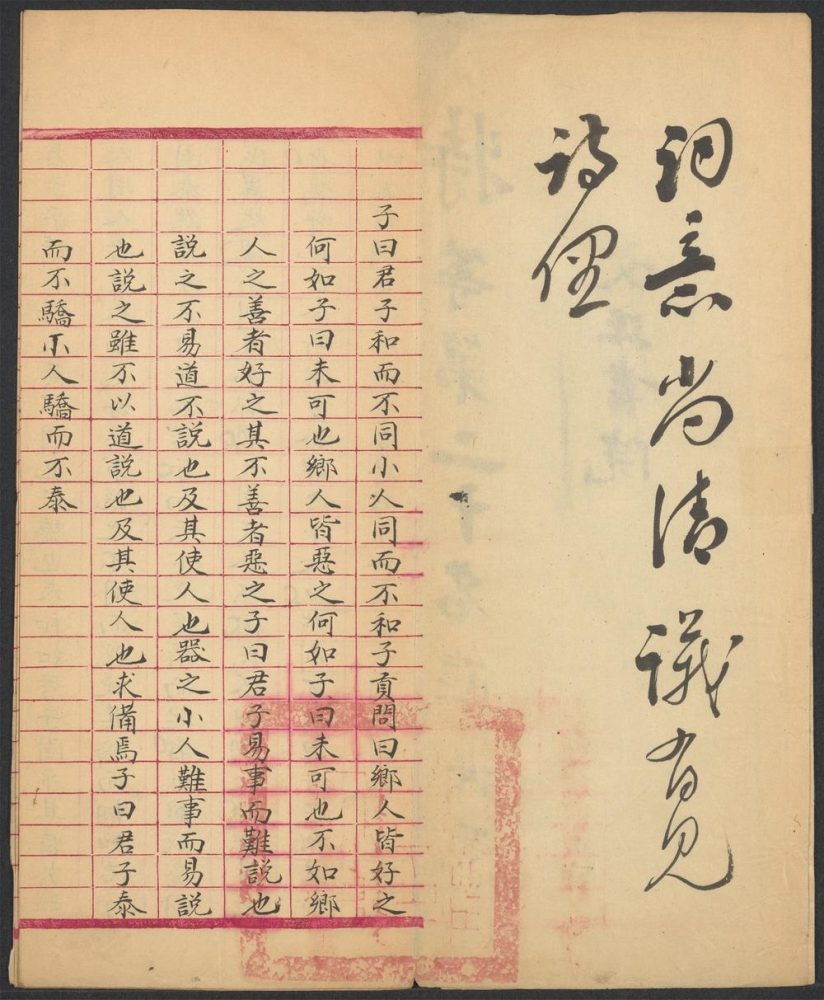 詞意尚清議有見
詩俚
子曰君子和而不同小人同而不和子貢問曰鄉人皆好之
何如子曰未可也鄉人皆惡之何如子曰未可也不如鄉
人之善者好之其不善者惡之子曰君子易事而難說也
說之不易道不說也及其使人也器之小人難事而易說
也說之雖不以道說也及其使人也求備焉子曰君子泰
而不驕小人驕而不泰